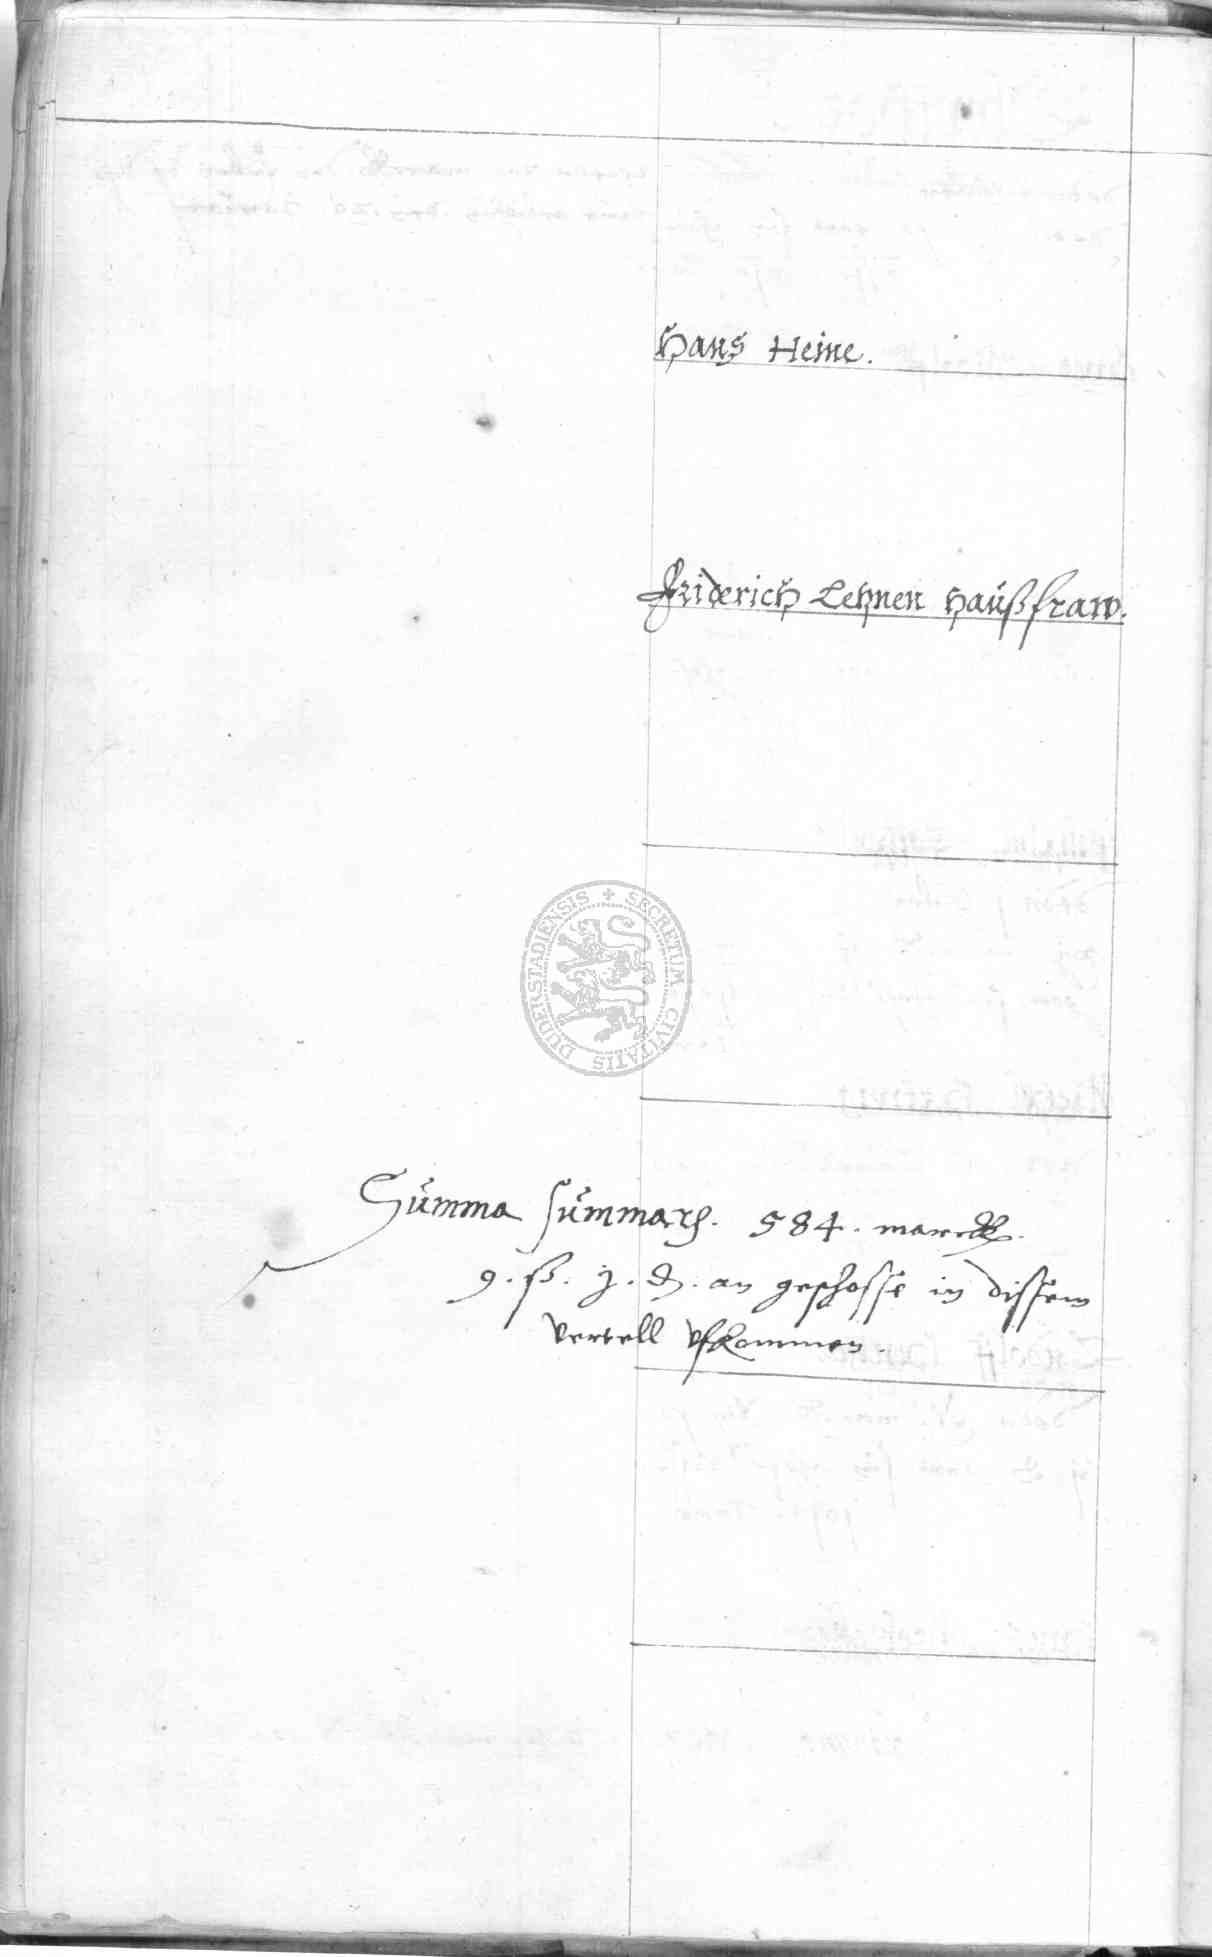 Hans Heine.
Friderich Lehnen Haußfraw.
SECRETUM CIVITATIS DUDERSTADIENSIS
Summa summarum. 584. marck.
9. ß. j. d. an geschosse in dissem
Vertell vfkommen.